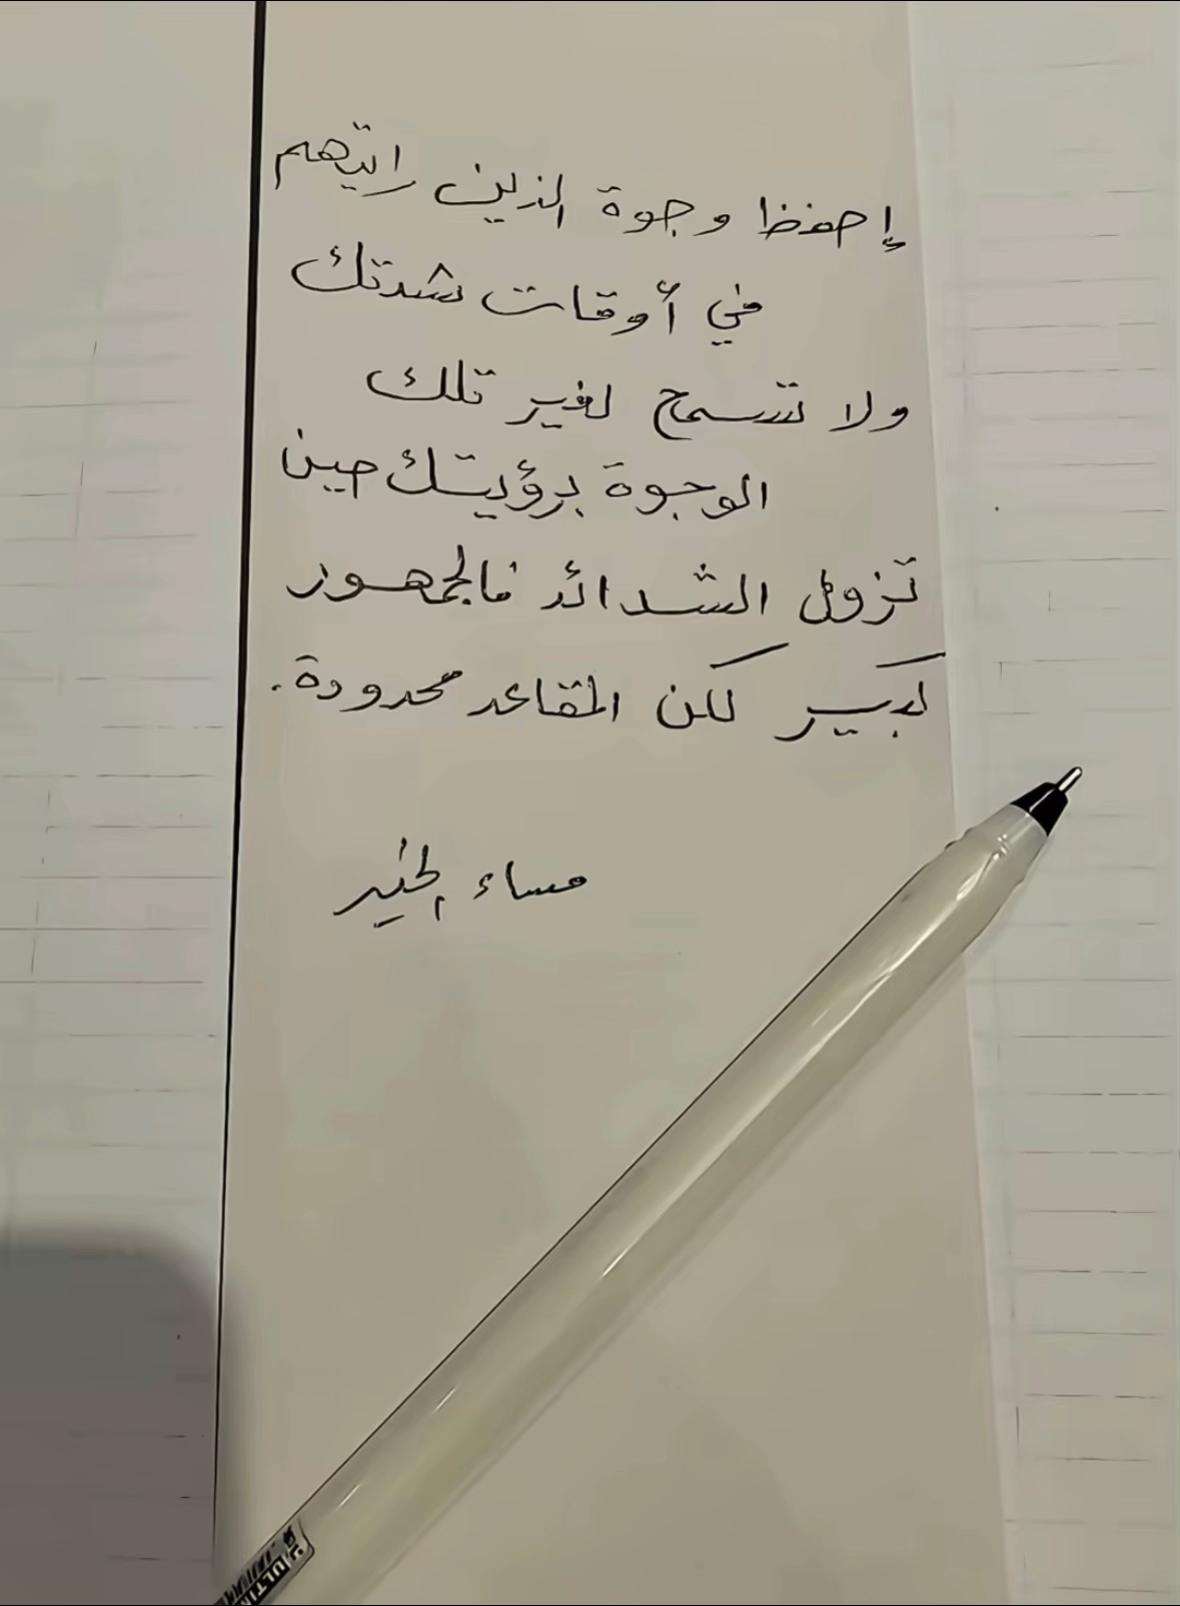 إحفظ وجوة الذين رايتهم
في أوقات شدتك
ولا تسمح لغير تلك
الوجوة برؤيتك حين
تزول الشدائد فالجمهور
كبير لكن المقاعد محدودة.
مساء الخير
ULTI